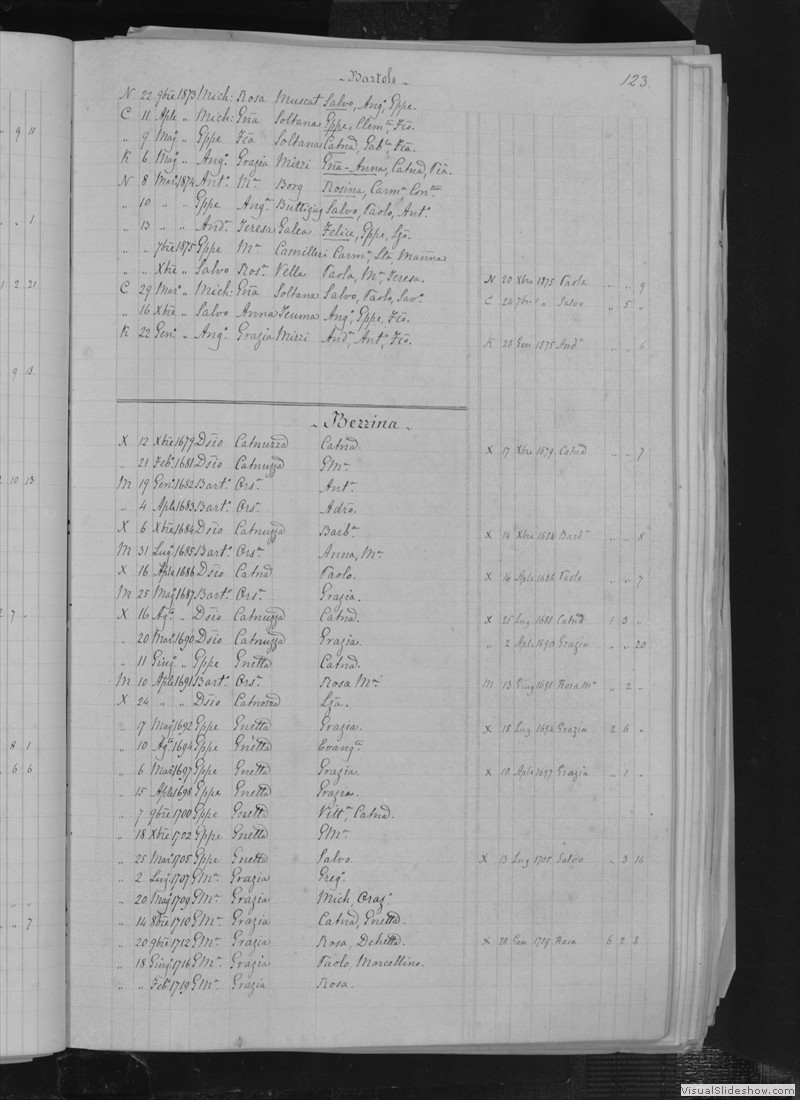 Bartolo
123
N 22 9bre 1873 Mich: Rosa Muscat Salvo, Ang:, Eppe.
C 11 Aple „ Mich: Gña Soltana Eppe, Clem:, Fîo.
„ 9 Mag: „ Eppe Fîa Soltana Catnd, Gab:, Fîa.
K 6 Mag: „ Ang: Grazia Mizzi Gña-Anna, Catnd, Pia.
N 8 Mar: 1874 Ant: Mª Borg Rosina, Carmª, Conª
„ 10 „ „ Eppe Angª Buttigieg Salvo, Paolo, Antº
„ 13 „ „ And: Teresa Galea Felice, Eppe, Lzo.
„ „ 7bre 1875 Eppe Mª Camilleri Carmª,
„ „ Xbre „ Salvo Rosª Vella Paola, Mª, Teresa. N 20 Xbre 1875 Paola „ „ 9
C 29 Mar: „ Mich: Gña Soltana Salvo, Paolo, Savº C 24 7bre „ Salvo „ 5 „
„ 16 Xbre „ Salvo Anna Zcuma Angº, Eppe, Fîo.
K 22 Gen: „ Ang: Grazia Mizzi Andª, Antº, Fîo. K 28 Gen 1875 Andª „ „ 6
Bezzina
X 12 Xbre 1679 Dsîo Catnuzza Catnd. X 17 Xbre 1679 Catnd „ „ 7
„ 21 Feb: 1681 Dsîo Catnuzza GMª
M 19 Gen: 1682 Bart: Orsª Antº
„ 4 Aple 1683 Bart: Orsª Adrô.
X 6 Xbre 1684 Dsîo Catnuzza Barbª X 14 Xbre 1684 Barbª „ „ 8
M 31 Lug: 1685 Bart: Orsª Anna, Mª
X 16 Aple 1686 Dsîo Catnd Paolo. X 16 Aple 1686 Paolo „ „ 7
M 25 Mag: 1687 Bart: Orsª Grazia.
X 16 Agº „ Dsîo Catnuzza Catnd. X 25 Lug 1688 Catnd 1 3 „
„ 20 Mar: 1690 Dsîo Catnuzza Grazia. „ 2 Aple 1690 Grazia „ „ 20
„ 11 Giug: „ Eppe Gnetta Catnd.
M 10 Aple 1691 Bart: Orsª Rosa Mª M 13 Giug 1691 Rosa Mª „ 2 „
X 24 „ „ Dsîo Catnozza Lza.
„ 17 Mag: 1692 Eppe Gnetta Grazia. X 18 Lug 1694 Grazia 2 6 „
„ 10 Agº 1694 Eppe Gnetta Evangª
„ 6 Mar: 1697 Eppe Gnetta Grazia X 10 Aple 1697 Grazia „ 1 „
„ 15 Aple 1698 Eppe Gnetta Grazia.
„ 7 9bre 1700 Eppe Gnetta Vittª, Catnd.
„ 18 Xbre 1702 Eppe Gnetta GMª
„ 25 Mar: 1705 Eppe Gnetta Salvo. X 13 Lug 1705 Salvo „ 3 16
„ 2 Lug: 1707 GMª Grazia Gregº
„ 20 Mag: 1709 GMª Grazia Mich, Oraz:
„ 14 8bre 1710 GMª Grazia Catnd, Gnetta.
„ 20 9bre 1712 GMª Grazia Rosa, Dchetta. X 28 Gen 1719 Rosa 6 2 8
„ 18 Giug: 1716 GMª Grazia Paolo, Marcellino.
„ „ Feb: 1719 GMª Grazia Rosa.
VisualSlideshow.com